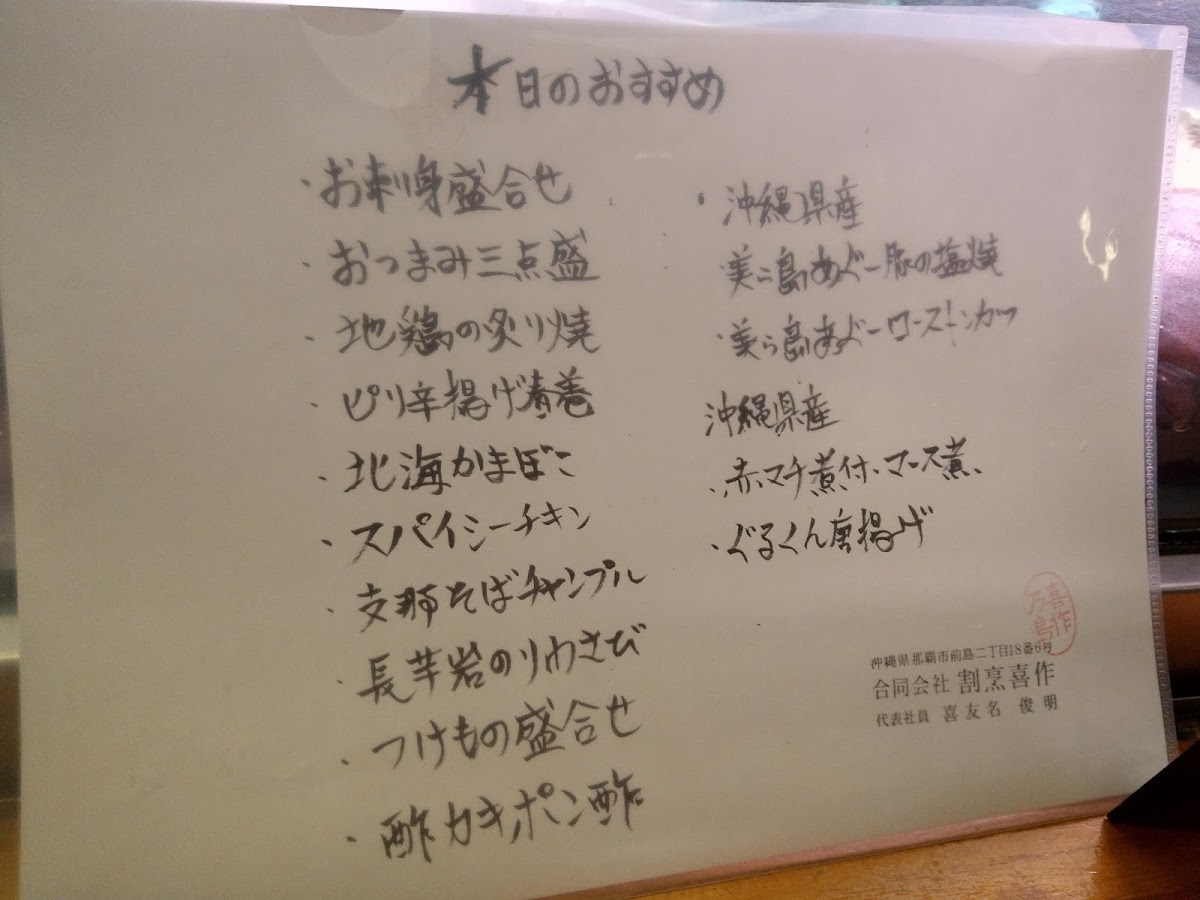 本日のおすすめ
・お刺身盛合せ
・おつまみ三点盛
・地鶏の炙り焼
・ピリ辛揚げ春巻
・北海かまぼこ
・スパイシーチキン
・支那そばチャンプル
・長芋岩のりわさび
・つけもの盛合せ
・酢カキポン酢
・沖縄県産
美ら島あぐー豚の塩焼
・美ら島あぐーローストンカツ
沖縄県産
・赤マチ煮付、マース煮、
・ぐるくん唐揚げ
喜作
乃島
沖縄県那覇市前島二丁目18番6号
合同会社 割烹喜作
代表社員 喜友名 俊明